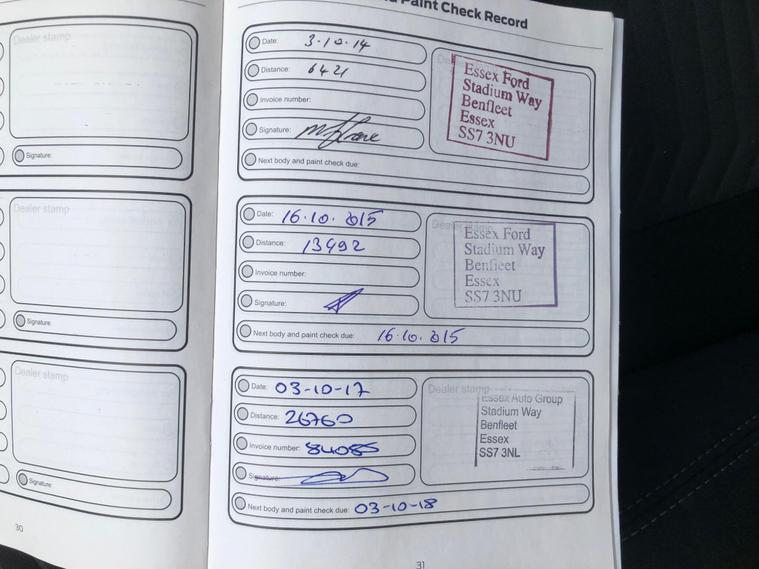 Dealer stamp
Signature:
Dealer stamp
Signature:
Dealer stamp
Signature:
30
Paint Check Record
Date: 3-10-14
Distance: 6421
Invoice number:
Signature:
Next body and paint check due:
Essex Ford
Stadium Way
Benfleet
Essex
SS7 3NU
Date: 16.10.2015
Distance: 13492
Invoice number:
Signature:
Next body and paint check due: 16.10.2015
Essex Ford
Stadium Way
Benfleet
Essex
SS7 3NU
Date: 03-10-17
Distance: 26760
Invoice number: 84085
Signature:
Next body and paint check due: 03-10-18
Dealer stamp
Essex Auto Group
Stadium Way
Benfleet
Essex
SS7 3NL
31